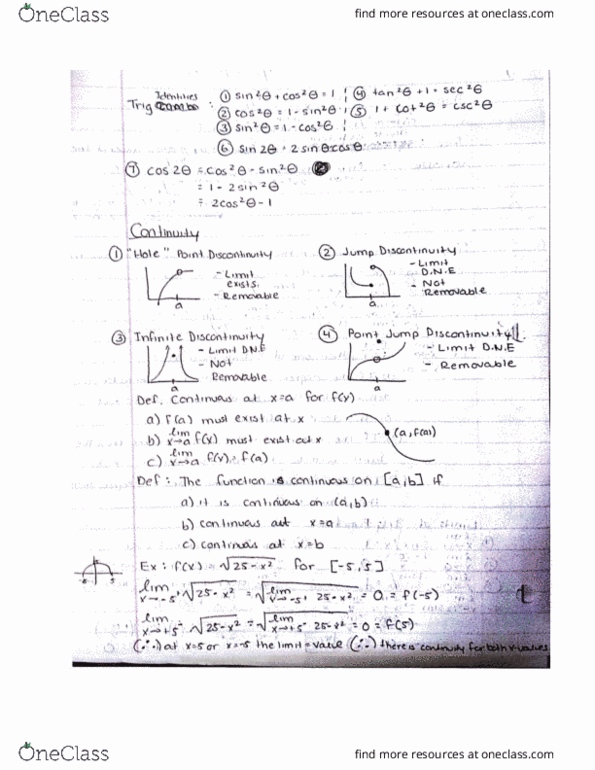 OneClass
find more resources at oneclass.com
Trig Identities :
① sin²θ + cos²θ = 1
④ tan²θ + 1 = sec²θ
② cos²θ = 1 - sin²θ
⑤ 1 + cot²θ = csc²θ
③ sin²θ = 1 - cos²θ
⑥ sin 2θ = 2 sinθcosθ
⑦ cos 2θ = cos²θ - sin²θ
= 1 - 2sin²θ
= 2cos²θ - 1
Continuity
① "Hole" Point Discontinuity
- Limit exists.
- Removable
a
② Jump Discontinuity
- Limit D.N.E
- Not Removable
a
③ Infinite Discontinuity
- Limit D.N.E
- Not Removable
a
④ Point Jump Discontinuity
- Limit D.N.E
- Removable
a
Def. Continuous at x=a for f(x)
a) f(a) must exist at x
b) lim x→a f(x) must exist at x
(a, f(a))
c) lim x→a f(x) = f(a)
Def : The function is continuous on [a,b] if
a) it is continuous on (a,b)
b) continuous at x=a
c) continous at x=b
Ex : f(x) = √25-x² for [-5,5]
lim x→-5⁺ √25-x² = √lim x→-5⁺ 25-x² = 0 = f(-5)
lim x→+5⁻ √25-x² = √lim x→+5⁻ 25-x² = 0 = f(5)
(∴) at x=5 or x=-5 the limit = value (∴) there is continuity for both x-values
OneClass
find more resources at oneclass.com